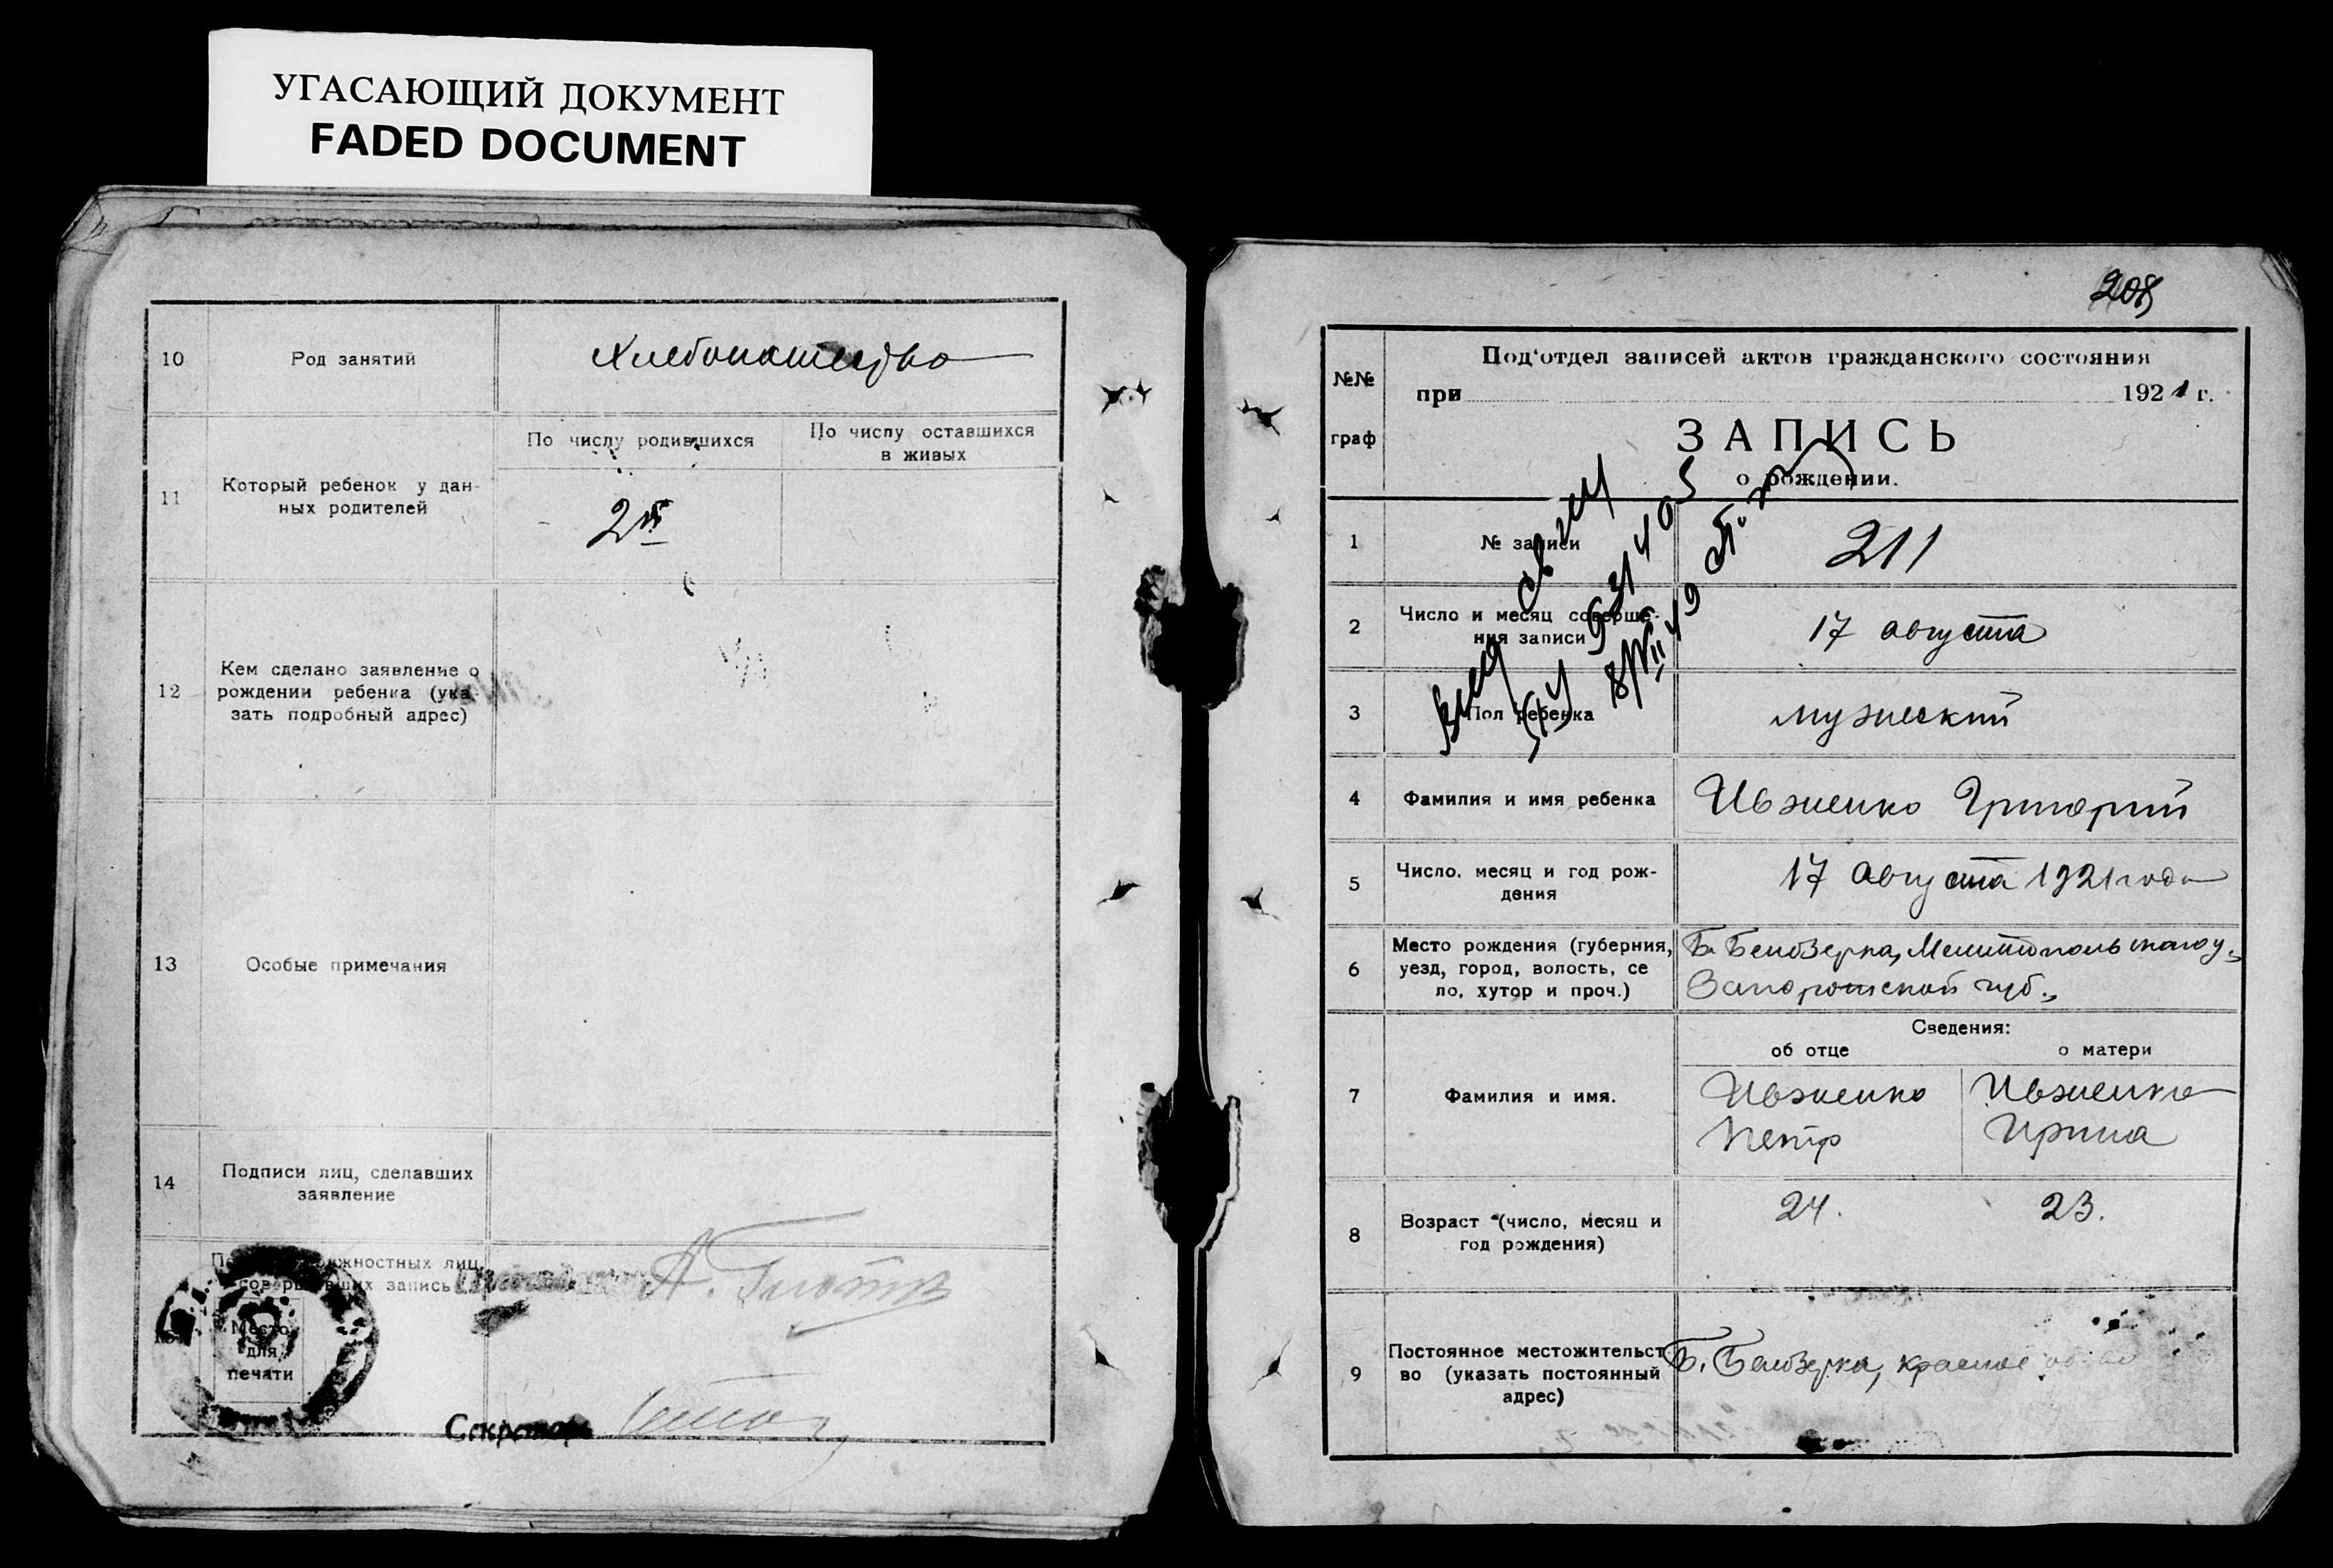 УГАСАЮЩИЙ ДОКУМЕНТ
FADED DOCUMENT
10
Род занятий
Хлебопашество
11
Который ребенок у дан-
ных родителей
По числу родившихся
По числу оставшихся
в живых
2й
12
Кем сделано заявление о
рождении ребенка (ука-
зать подробный адрес)
13
Особые примечания
14
Подписи лиц, сделавших
заявление
должностных лиц,
совершивших запись
А.
Место
для
печати
Секретарь
208
№№
граф
Под'отдел записей актов гражданского состояния
при 1921 г.
ЗАПИСЬ
о рождении.
1
№ записи
211
2
Число и месяц соверше-
ния записи
17 августа
3
Пол ребенка
мужеский
4
Фамилия и имя ребенка
Ивженко Григорий
5
Число, месяц и год рож-
дения
17 августа 1921 года
6
Место рождения (губерния,
уезд, город, волость, се
ло, хутор и проч.)
Б. Белозерка, Мелитопольского у.,
Запорожской губ.,
Сведения:
об отце
о матери
7
Фамилия и имя.
Ивженко
Петр
Ивженко
Ирина
8
Возраст (число, месяц и
год рождения)
24.
23.
9
Постоянное местожительст
во (указать постоянный
адрес)
Б. Белозерка, красное